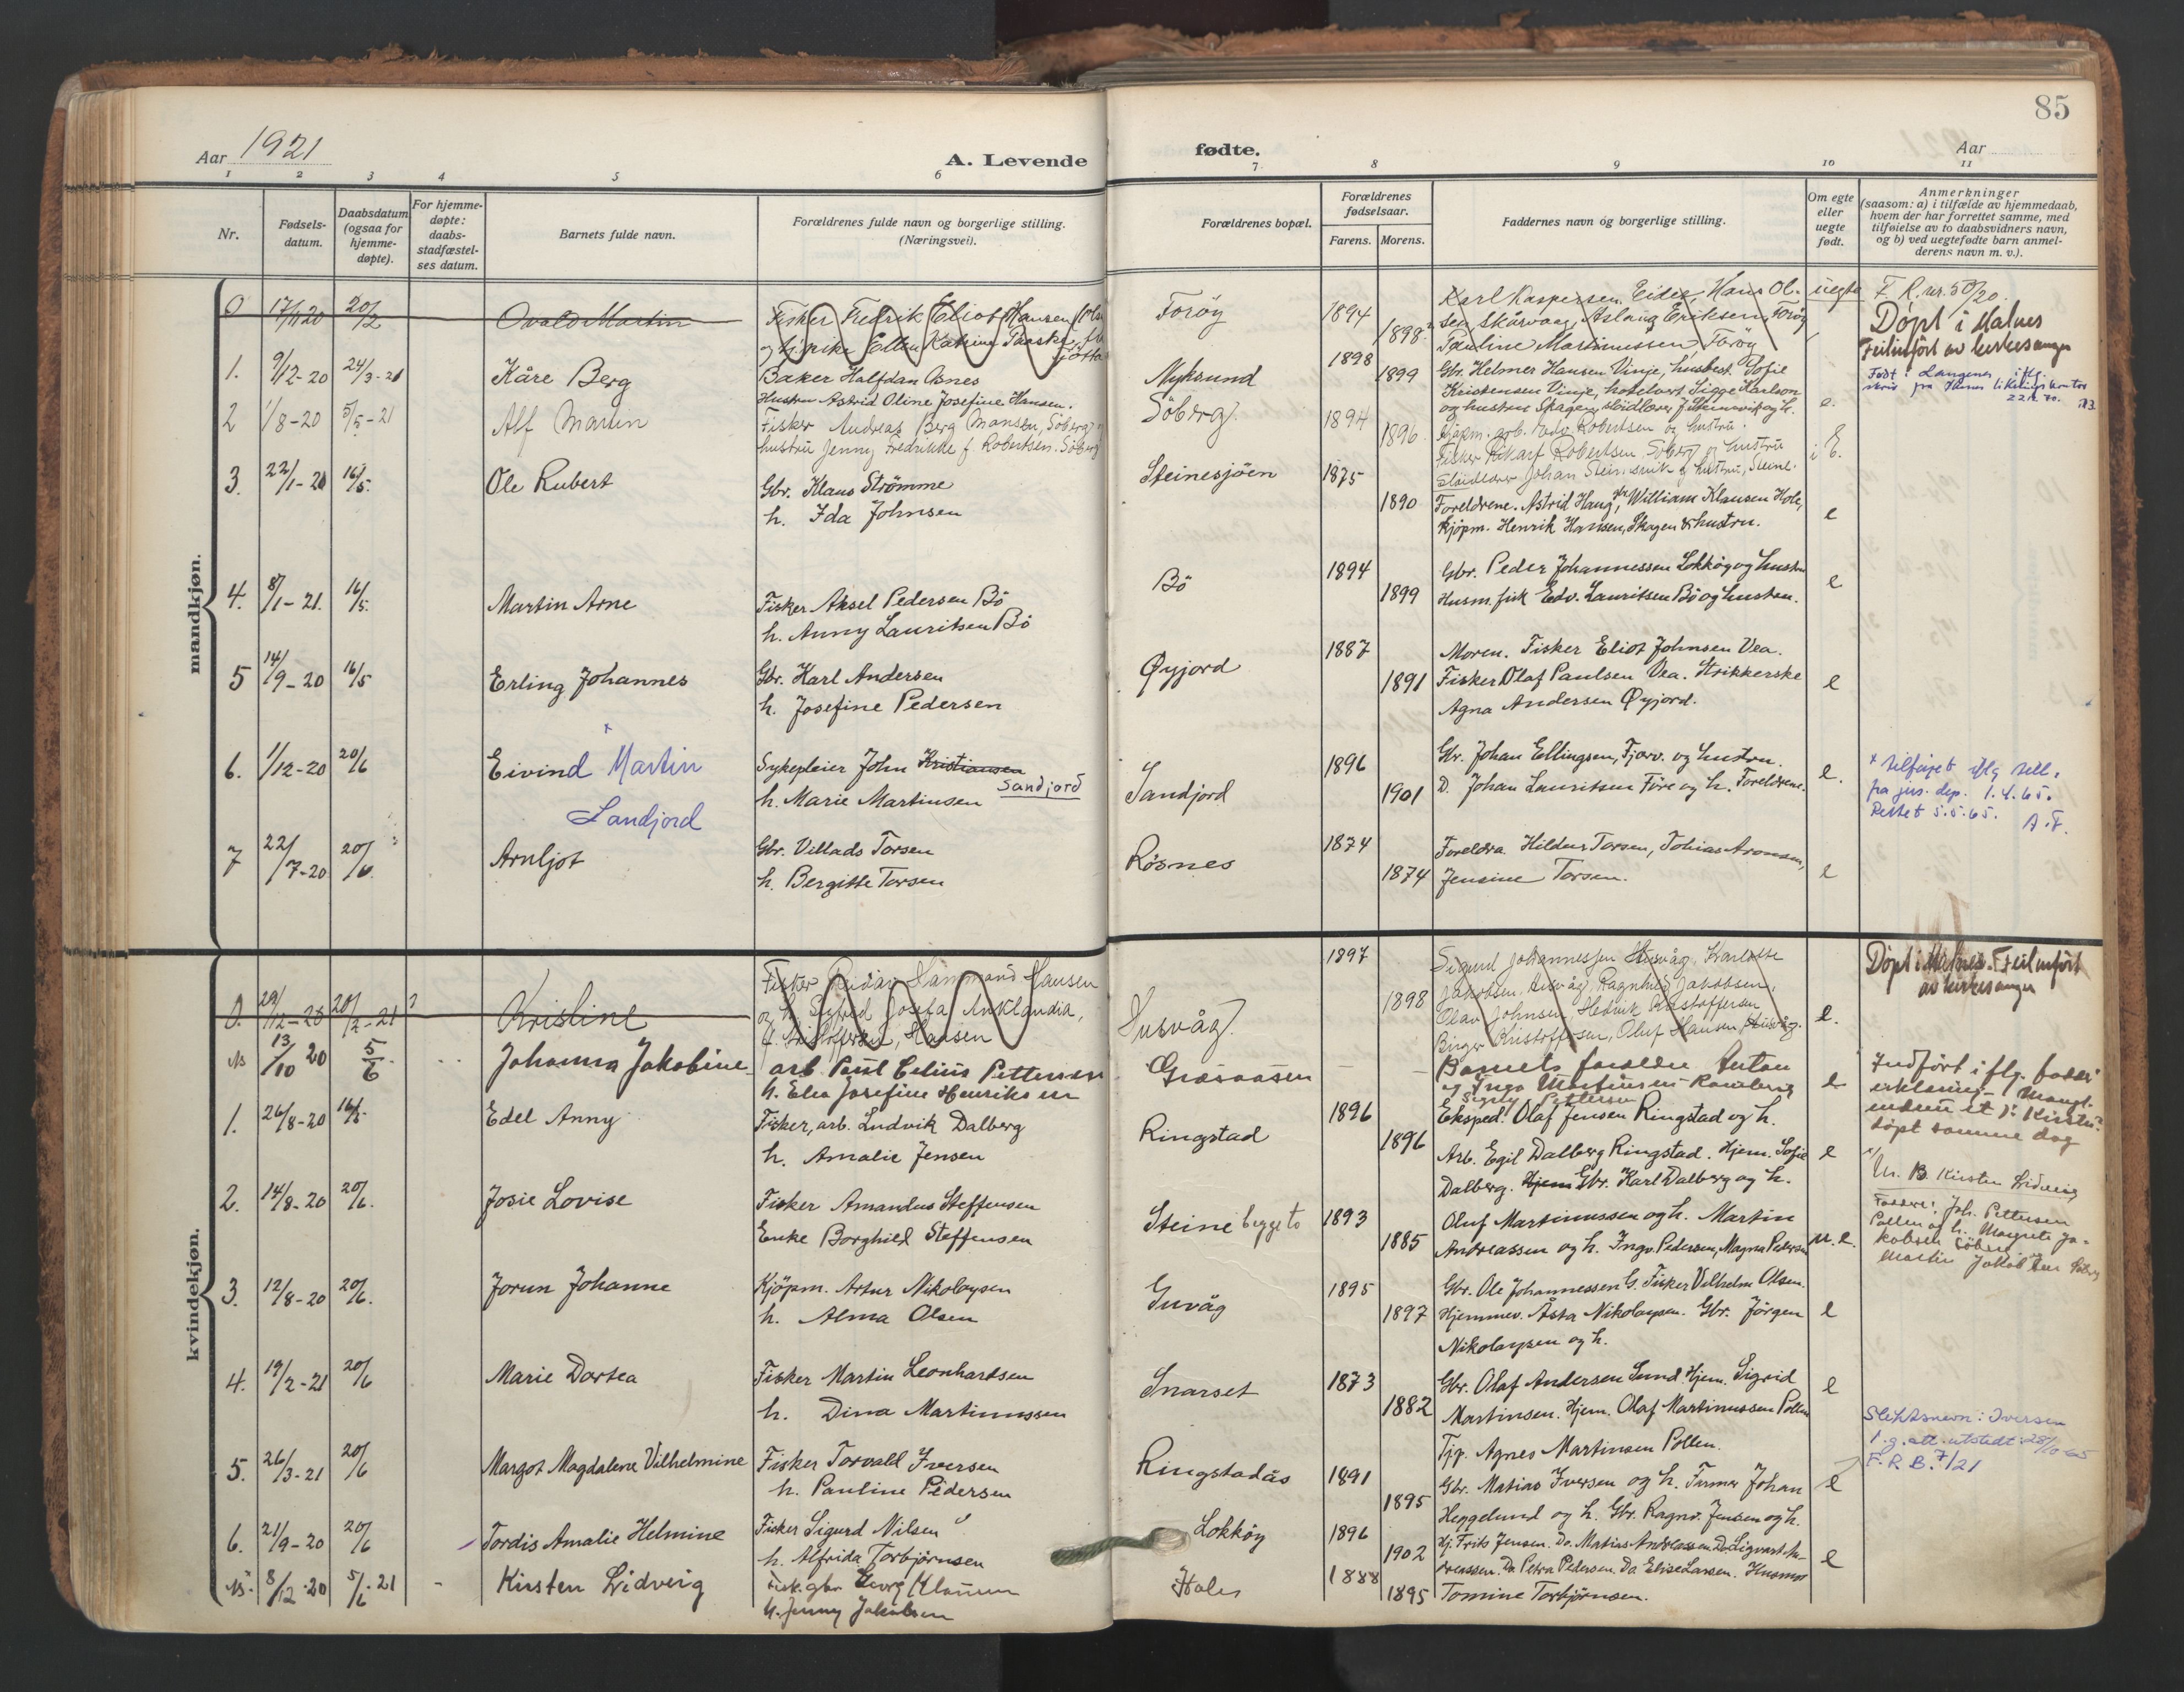 85
Aar 1921
A. Levende
fødte.
Aar
1 2 3 4 5 6 7 8 9 10 11
Nr.
Fødsels-
datum.
Daabsdatum
(ogsaa for
hjemme-
døpte).
For hjemme-
døpte:
daabs-
stadfæstel-
ses datum.
Barnets fulde navn.
Forældrenes fulde navn og borgerlige stilling.
(Næringsvei).
Forældrenes bopæl.
Forældrenes
fødselsaar.
Farens. Morens.
Faddernes navn og borgerlige stilling.
Om egte
eller
uegte
født.
Anmerkninger
(saasom: a) i tilfælde av hjemmedaab,
hvem der har forrettet samme, med
tilføielse av to daabsvidners navn,
og b) ved uegtefødte barn anmel-
derens navn m. v.).
mandkjøn.
0 17/11 20 20/2 Ovald Martin
Fisker Fredrik Eliot Hansen
Forøy 1894 1898
Karl Kaspersen, Eidet, Hans Ol-
sen Skårvaag, Aslaug Eriksen, Forøy
Pauline Martinussen, Forøy
uegte
F. R. nr. 50/20.
Døpt i Malnes
Feilinført av kirkesanger
1. 9/12-20 24/3-21 Kåre Berg
Baker Halfdan Asnes
Hustru Astrid Oline Josefine Hansen.
Nyksund 1898 1899
Gbr. Helmer Hansen Vinje, husbest. Sofie
Kristensen Vinje, hotelvert Sigge Karlson
og hustru Skagen, sløidlærer J. Steinsvik og h.
e.
Født i Langenes iflg.
skriv fra Vanes likningskontor
2 1/8-20 5/5-21 Alf Martin
Fisker Andreas Berg Hansen, Søberg og
hustru Jenny Fredrikke f. Robertsen. Søberg
Søberg 1894 1896
Kjøpm. arb. Edv. Robertsen og hustru
Fisker Rikart Robertsen Søberg og hustru
Sløidlærer Johan Steinsvik og hustru, Steine.
E.
3. 22/1-21 16/5. Ole Rubert
Gbr. Klaus Strømme
h. Ida Johnsen
Steinesjøen 1875 1890
Foreldrene. Astrid Haug, gbr. William Klausen Hole,
kjøpm. Henrik Hansen, Skagen & hustru.
e
4. 8/1-21. 16/5. Martin Arne
Fisker Aksel Pedersen Bø
h. Anny Lauritsen Bø
Bø 1894 1899
Gbr. Peder Johannessen Lokkøy og hustru
Husm. fisk Edv. Lauritsen Bø og hustru.
e
5 14/9-20 16/5 Erling Johannes
Gbr. Karl Andersen
h. Josefine Pedersen
Øyjord 1887 1891
Moren. Fisker Eliot Johnsen Vea.
Fisker Olaf Paulsen Vea. Strikkerske
Agna Andersen Øyjord.
e
6. 1/12-20 20/6 Eivind Martin
Sandjord
Sykepleier John Kristiansen
Sandjord
h. Marie Martinsen
Sandjord 1896 1901
Gbr. Johan Ellingsen, Fjærv. og hustru.
D. Johan Lauritsen Føre og h. Foreldrene.
e.
x tilføyet iflg till.
fra jus. dep. 1.4.65.
Rettet 5.5.65. A.F.
7 22/7-20 20/6 Arnljot
Gbr. Villads Torsen
h. Bergitte Torsen
Røsnes 1874 1874
Foreldra. Hildur Torsen, Tobias Aronsen,
Jensine Torsen.
e
kvindekjøn.
0. 29/12-20 20/2-21 Kristine
Fisker Reidar Hammand Hansen
og h. Sigfred Josefa Anklandia,
f. Kristoffersen, Hansen
Husvåg. 1897 1898
Sigurd Johannessen Husvåg, Karlotte
Jakobsen, Husvåg, Ragnhild Jakobsen,
Olav Johnsen, Hedvik Kristoffersen
Birger Kristoffersen, Oluf Hansen, Husvåg.
e.
Døpt i Malnes. Feilinført
av kirkesanger
N 13/10 20 5/6 Johanna Jakobine
arb. Paul Celius Pettersen
h. Elea Josefine Henriksen
Græsaasen
Barnets foreldre Anton
og Inga Martinsen - Ramberg
Signy Pettersen
e
Indført iflg. fader
erklæring
døpt samme dag
1. 26/8-20 16/5. Edel Anny
Fisker, arb. Ludvik Dalberg
h. Amalie Jensen
Ringstad 1896 1896
Eksped. Olaf Jensen Ringstad og h.
Arb. Egil Dalberg Ringstad. Hjem. Sofie
Dalberg. Hjem Gbr. Karl Dalberg og h.
e
N. B. Kirsten Lidveig
Faddere: Joh. Pettersen
Pollen og h. Margrete Ja-
kobsen Søberg
Martin Jakobsen
2. 14/8-20 20/6. Josie Lovise
Fisker Amandus Steffensen
Enke Borghild Steffensen
Steine begge to 1893 1885
Oluf Martinussen og h. Martin
Andreassen og h. Ingv. Pedersen, Magna Pedersen
u.e.
3. 12/8-20 20/6. Jorun Johanne
Kjøpm. Artur Nikolaysen
h. Alma Olsen
Guvåg 1895 1897
Gbr. Ole Johannessen G. Fisker Vilhelm Olsen.
Hjemmev. Åsta Nikolaysen. Gbr. Jørgen
Nikolaysen og h.
e
4. 19/2-21 20/6 Marie Dortea
Fisker Martin Leonhardsen
h. Dina Martinussen
Snarset 1873 1882
Gbr. Olaf Andersen Sund. Hjem. Sigrid
Martinsen. Hjem. Olaf Martinussen Pollen
Tjp. Agnes Martinsen Pollen.
e
Slektsnavn: Iversen
l. g. att. utstedt 28/10 65
F.R.B. 7/21
5. 26/3-21 20/6 Margot Magdalene Vilhelmine
Fisker Torvald Iversen
h. Pauline Pedersen
Ringstadås 1891 1895
Gbr. Matias Iversen og h. Farmer Johan
Heggelund og h. Gbr. Ragnv. Jensen og h.
e
6. 21/9-20 20/6 Tordis Amalie Helmine
Fisker Sigurd Nilsen
h. Alfrida Torbjørnsen
Lokkøy 1896 1902
Hj. Frits Jensen. Do. Matias Andreassen. Do Sigvart An-
dreassen. Do Petra Pedersen. Do Elise Larsen. Husmor
Tomine Torbjørnsen.
e
N. 8/12-20 5/6-21 Kirsten Lidveig
Fisk. gbr Georg Klausen
h. Jenny Jakobsen
Hales 1888 1895